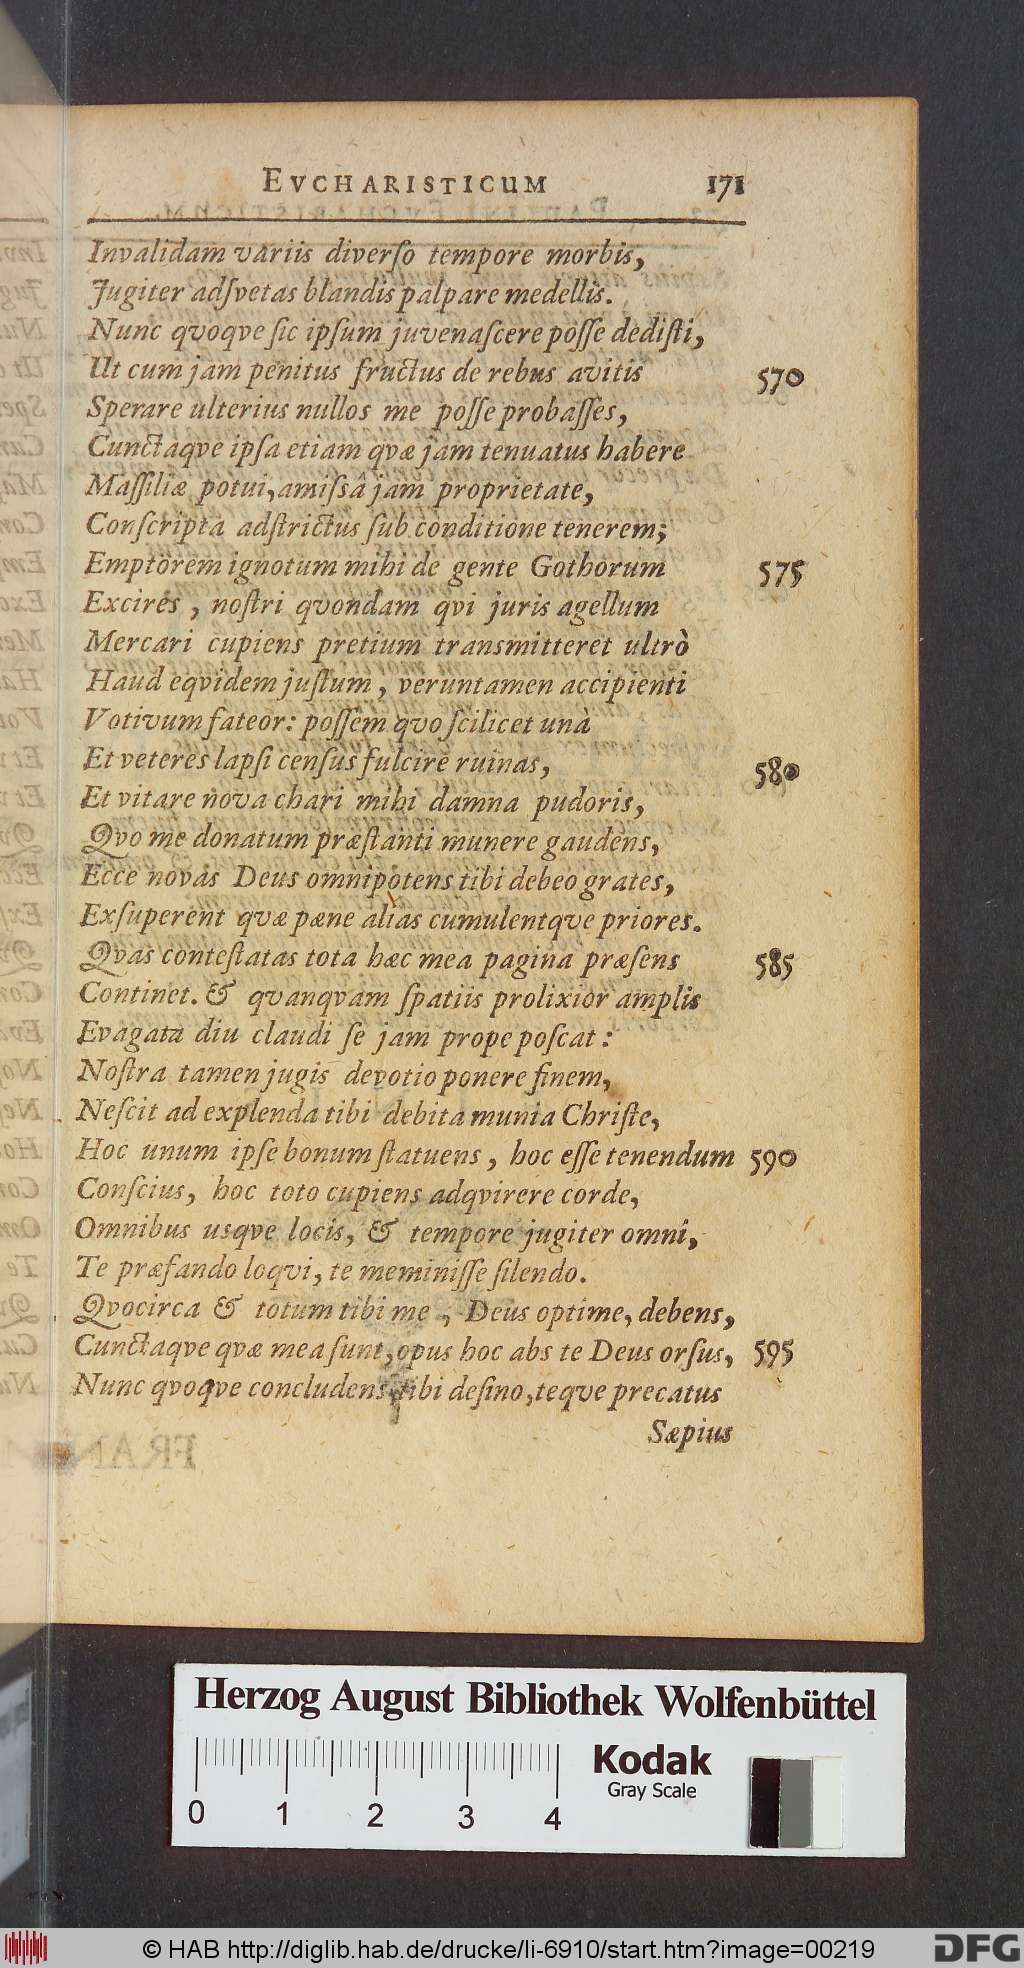 EVCHARISTICUM 171
Invalidam variis diverſo tempore morbis,
Jugiter adſvetas blandis palpare medellis.
Nunc qvoqve ſic ipſum juvenaſcere poſſe dediſti,
Ut cum jam penitus fructus de rebus avitis 570
Sperare ulterius nullos me poſſe probaſſes,
Cunctaqve ipſa etiam qvæ jam tenuatus habere
Maſſiliæ potui, amiſsâ jam proprietate,
Conſcripta adſtrictus ſub conditione tenerem;
Emptorem ignotum mihi de gente Gothorum 575
Excires, noſtri qvondam qvi juris agellum
Mercari cupiens pretium transmitteret ultrò
Haud eqvidem juſtum, veruntamen accipienti
Votivum fateor: poſſem qvo ſcilicet unà
Et veteres lapſi cenſus fulcire ruinas, 580
Et vitare nova chari mihi damna pudoris,
Qvo me donatum præſtanti munere gaudens,
Ecce novas Deus omnipotens tibi debeo grates,
Exſuperent qvæ pæne alias cumulentqve priores.
Qvas conteſtatas tota hæc mea pagina præſens 585
Continet. & qvanqvam ſpatiis prolixior amplis
Evagata diu claudi ſe jam prope poſcat:
Noſtra tamen jugis devotio ponere finem,
Neſcit ad explenda tibi debita munia Chriſte,
Hoc unum ipſe bonum ſtatuens, hoc eſſe tenendum 590
Conſcius, hoc toto cupiens adqvirere corde,
Omnibus usqve locis, & tempore jugiter omni,
Te præfando loqvi, te meminiſſe ſilendo.
Qvocirca & totum tibi me, Deus optime, debens,
Cunctaqve qvæ mea ſunt, opus hoc abs te Deus orſus, 595
Nunc qvoqve concludens tibi deſino, teqve precatus
Sæpius
Herzog August Bibliothek Wolfenbüttel
Kodak
Gray Scale
0 1 2 3 4
© HAB http://diglib.hab.de/drucke/li-6910/start.htm?image=00219
DFG